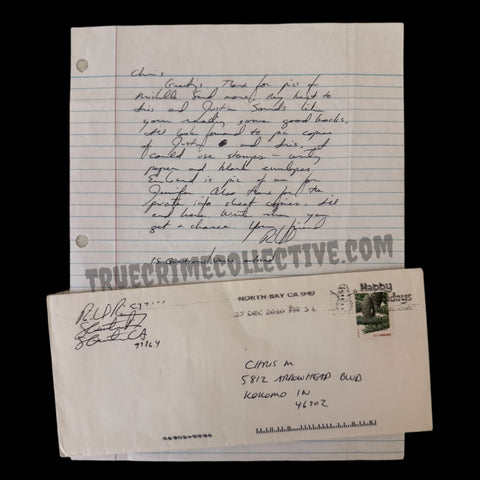 Chris
Greetings. Thanx for pics of
Michelle Send more, my heart to
Iris and Justin Sounds like
your reading some good books.
Ill look forward to pic copies
of Justin and Iris. I
could use stamps – writing
paper and blank envelopes
Enclosed is pic of me for
Jennifer Also thanx for the
private info sheet copies. Ill
end here, write when you
get a chance. Your friend
TRUECRIMECOLLECTIVE.COM
CA
NORTH BAY CA 949
07 DEC 2010 PM 3 L
Happy
Holidays
CHRIS M
5812 ARROWHEAD BLVD
KOKOMO IN
46902
46902+5594